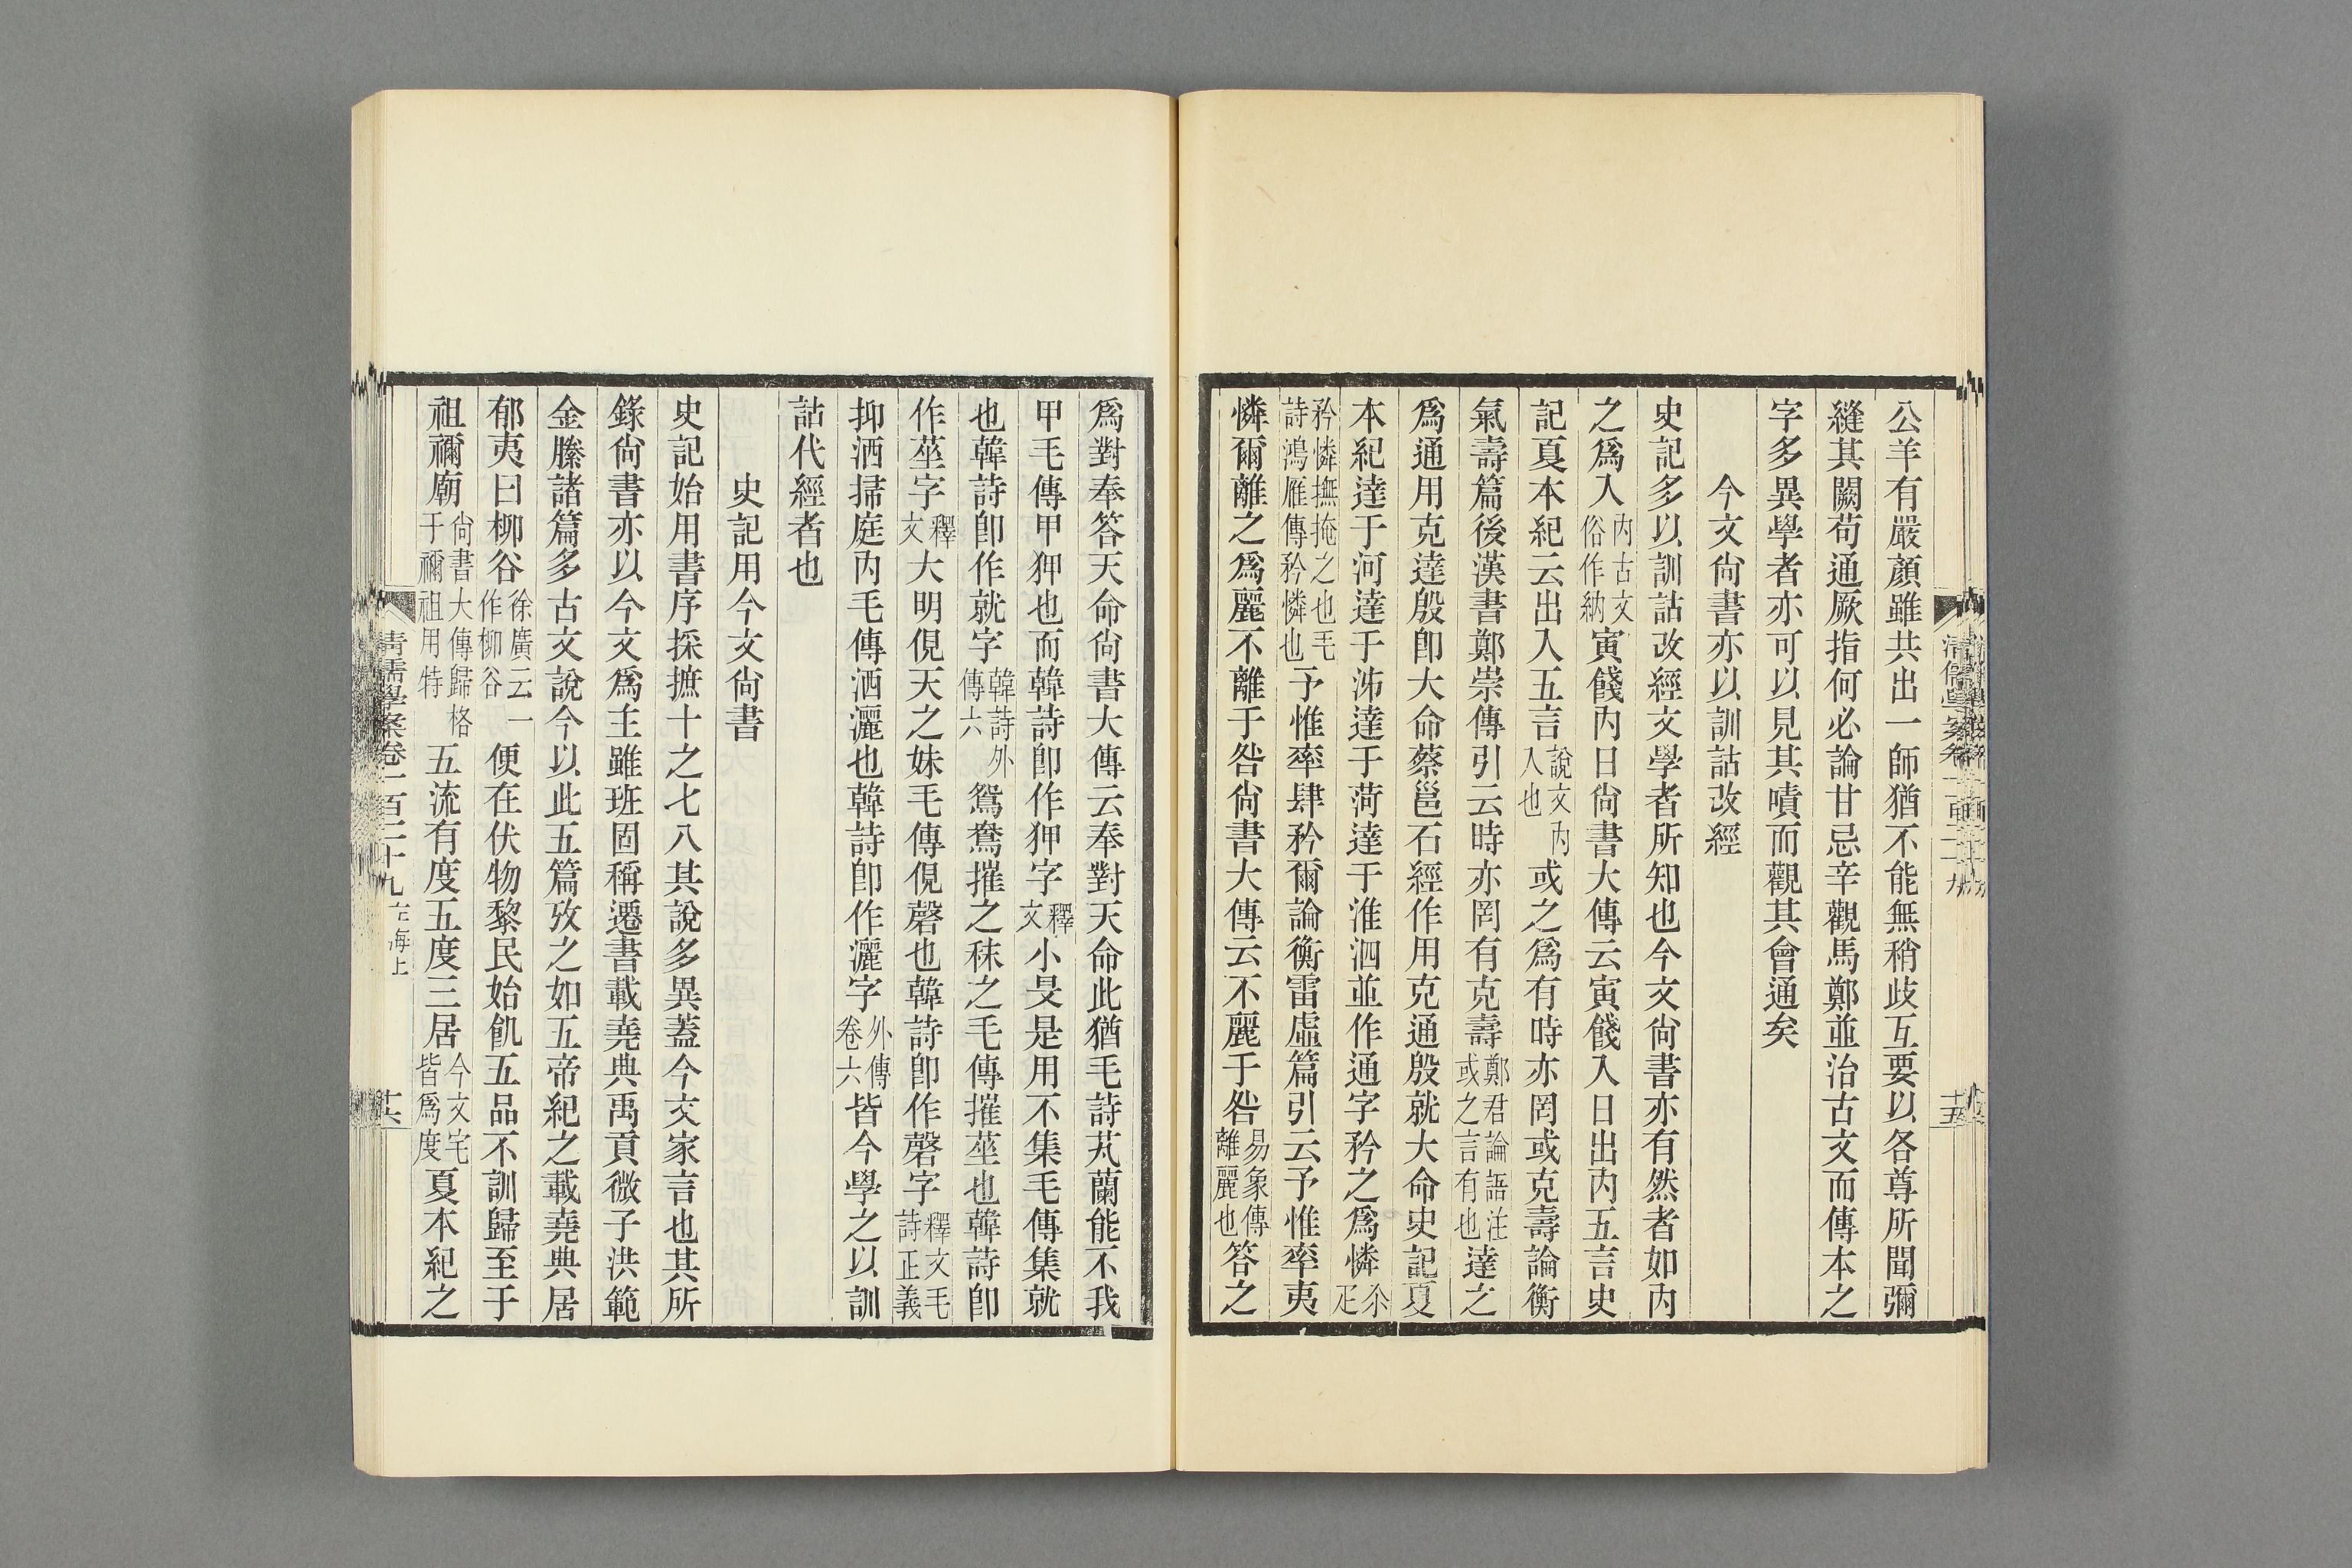 公羊有嚴顏雖共出一師猶不能無稍歧互要以各尊所聞彌
縫其闕苟通厥指何必論甘忌辛觀馬鄭並治古文而傳本之
字多異學者亦可以見其嘖而觀其會通矣
今文尙書亦以訓詁改經
史記多以訓詁改經文學者所知也今文尙書亦有然者如內
之爲入內古文俗作納寅餞內日尙書大傳云寅餞入日出內五言史
記夏本紀云出入五言說文內入也或之爲有時亦罔或克壽論衡
氣壽篇後漢書鄭崇傳引云時亦罔有克壽鄭君論語注或之言有也達之
爲通用克達殷卽大命蔡邕石經作用克通殷就大命史記夏
本紀達于河達于泲達于菏達于淮泗並作通字矜之爲憐尒疋
矜憐撫掩之也毛詩鴻雁傳矜憐也予惟率肆矜爾論衡雷虛篇引云予惟率夷
憐爾離之爲麗不離于咎尙書大傳云不麗于咎易彖傳離麗也答之
爲對奉答天命尙書大傳云奉對天命此猶毛詩芄蘭能不我
甲毛傳甲狎也而韓詩卽作狎字釋文小旻是用不集毛傳集就
也韓詩卽作就字韓詩外傳六鴛鴦摧之秣之毛傳摧莝也韓詩卽
作莝字釋文大明俔天之妹毛傳俔磬也韓詩卽作磬字釋文毛詩正義
抑洒掃庭內毛傳洒灑也韓詩卽作灑字外傳卷六皆今學之以訓
詁代經者也
史記用今文尙書
史記始用書序採摭十之七八其說多異蓋今文家言也其所
錄尙書亦以今文爲主雖班固稱遷書載堯典禹貢微子洪範
金縢諸篇多古文說今以此五篇攷之如五帝紀之載堯典居
郁夷曰柳谷徐廣云一作柳谷便在伏物黎民始飢五品不訓歸至于
祖禰廟尙書大傳歸格于禰祖用特五流有度五度三居今文宅皆爲度夏本紀之
清儒學案卷一百二十九 左海上
十六